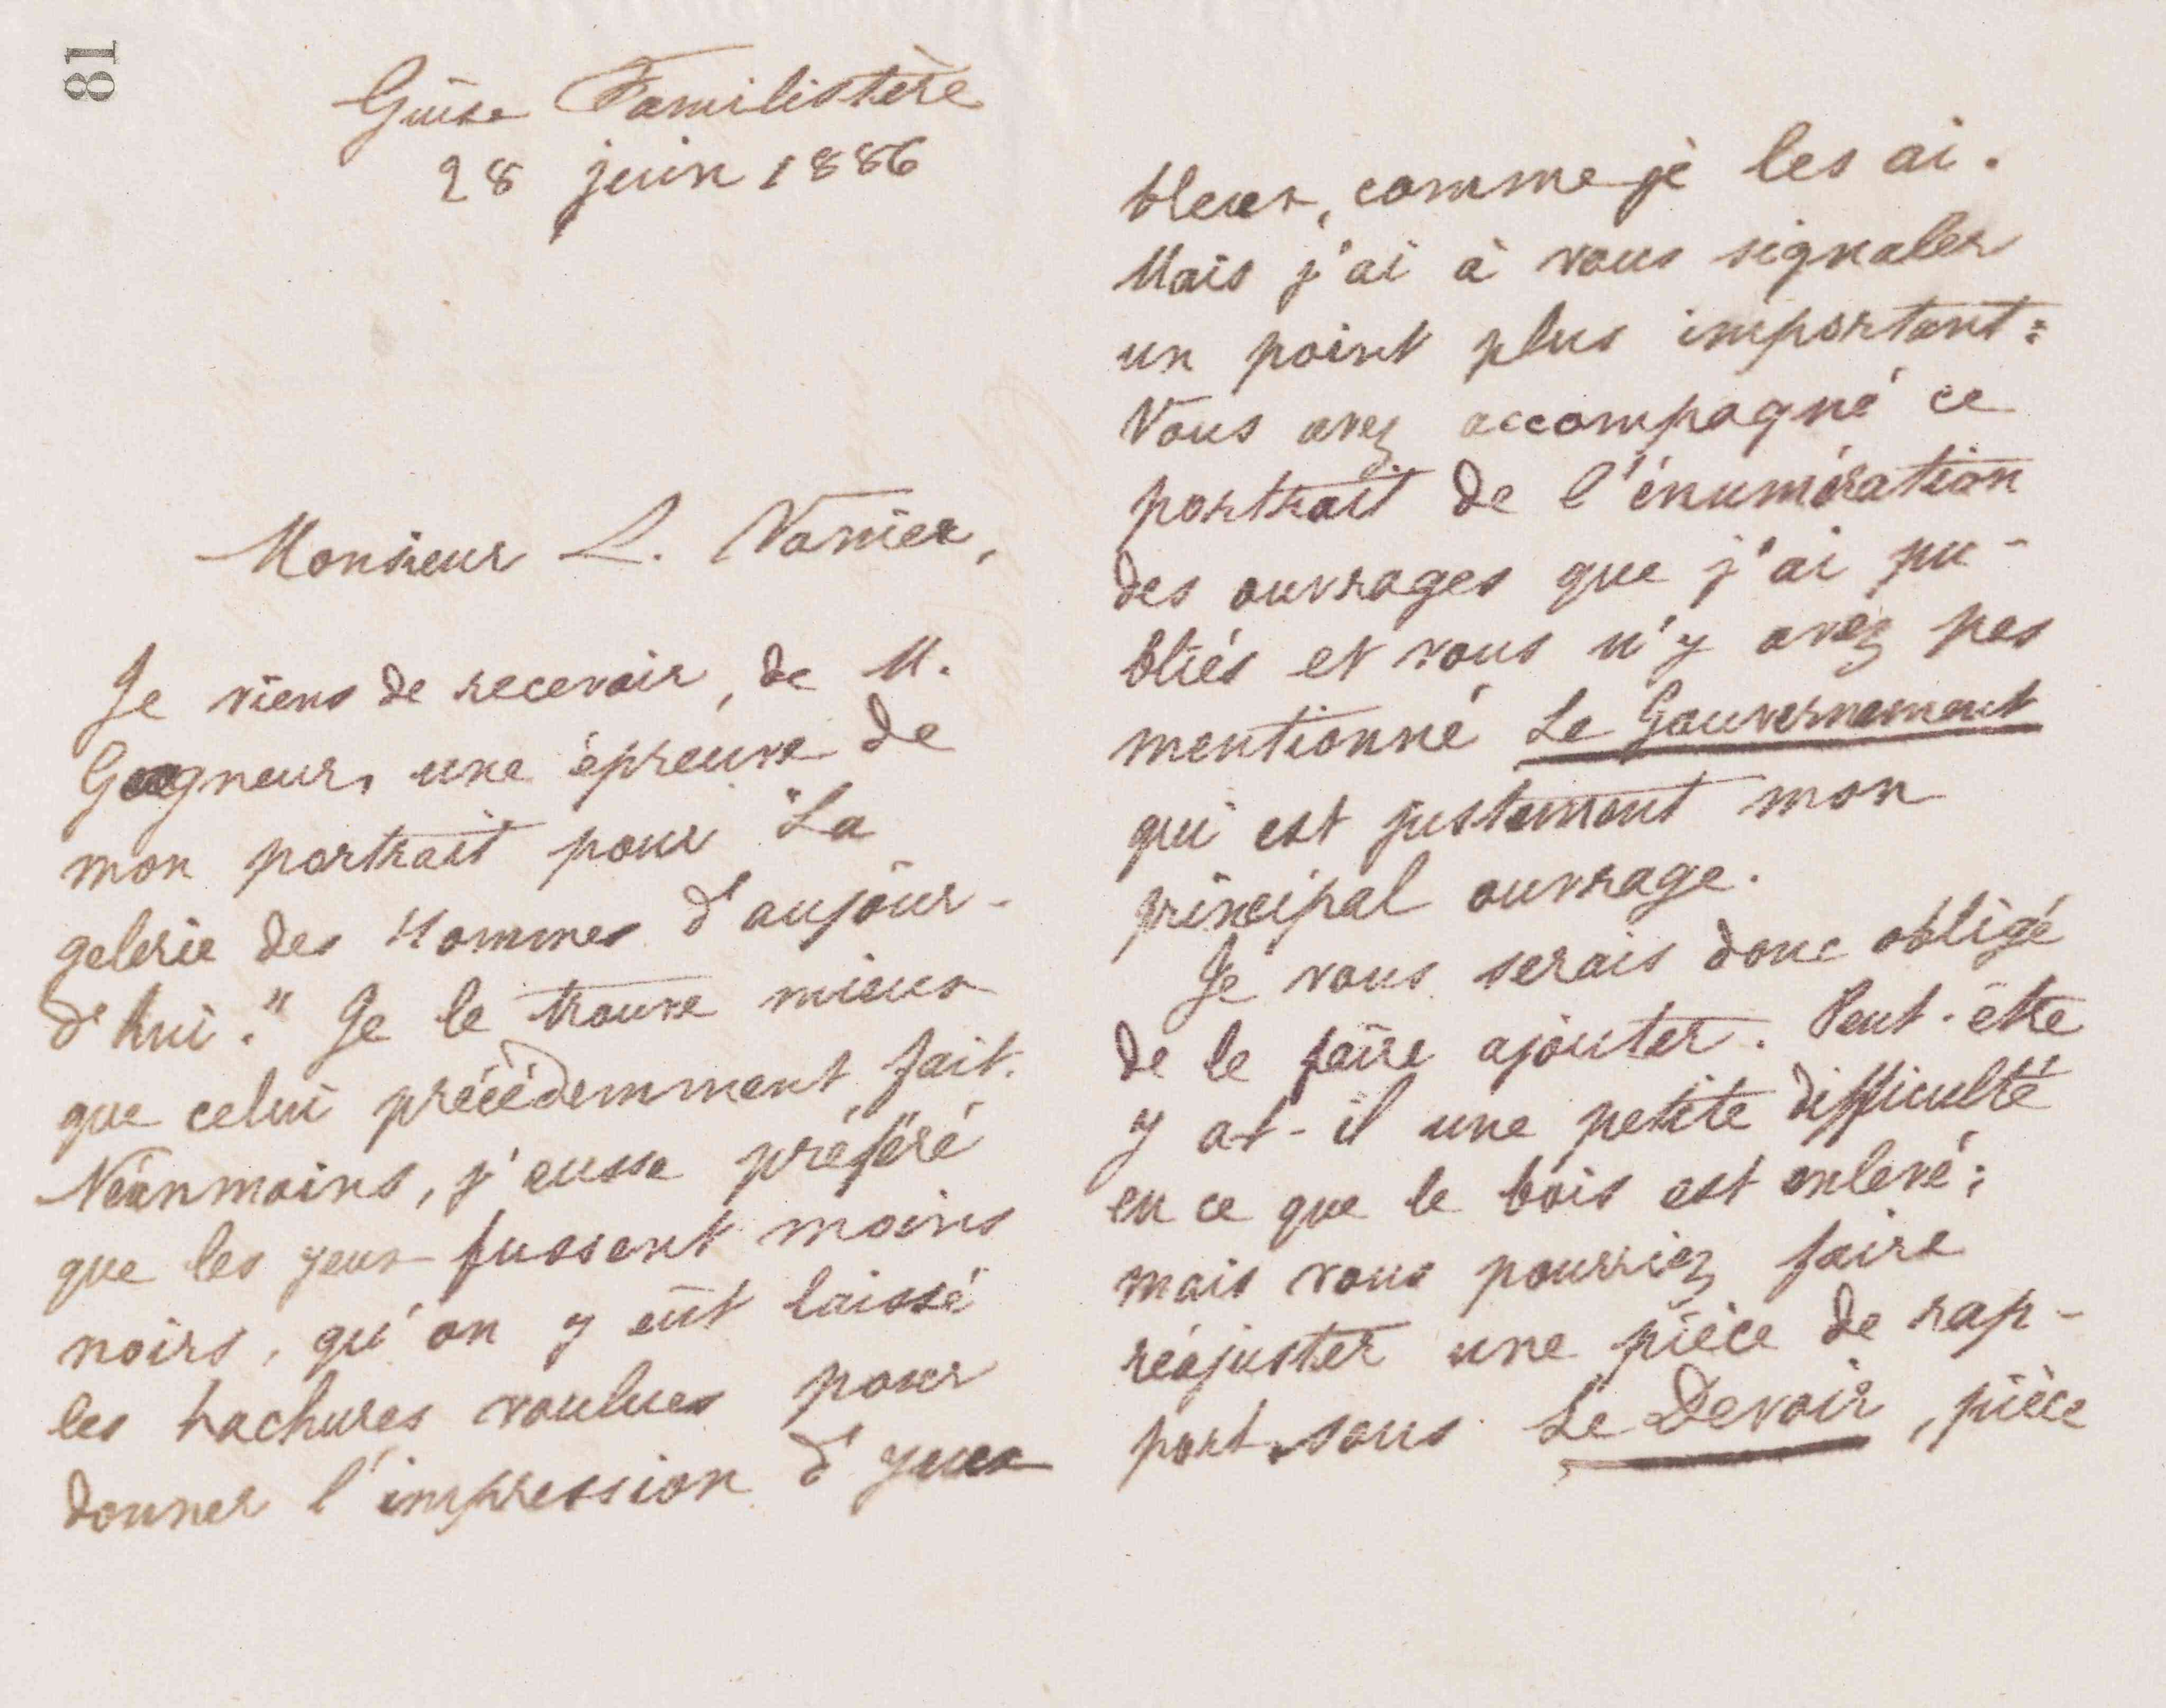 81
Guise Familistère
28 juin 1886
Monsieur L. Vanier,
Je viens de recevoir, de M.
Gagneur, une épreuve de
mon portrait pour "La
galerie des Hommes d'aujour-
d'hui." Je le trouve mieux
que celui précédemment fait.
Néanmoins, j'eusse préféré
que les yeux fussent moins
noirs, qu'on y eût laissé
les hachures voulues pour
donner l'impression d'yeux
bleus, comme je les ai.
Mais j'ai à vous signaler
un point plus important:
Vous avez accompagné ce
portrait de l'énumération
des ouvrages que j'ai pu-
bliés et vous n'y avez pas
mentionné Le Gouvernement
qui est justement mon
principal ouvrage.
Je vous serais donc obligé
de le faire ajouter. Peut-être
y at-il une petite difficulté
en ce que le bois est enlevé;
mais vous pourriez faire
réajuster une pièce de rap-
port sous Le Devoir, pièce